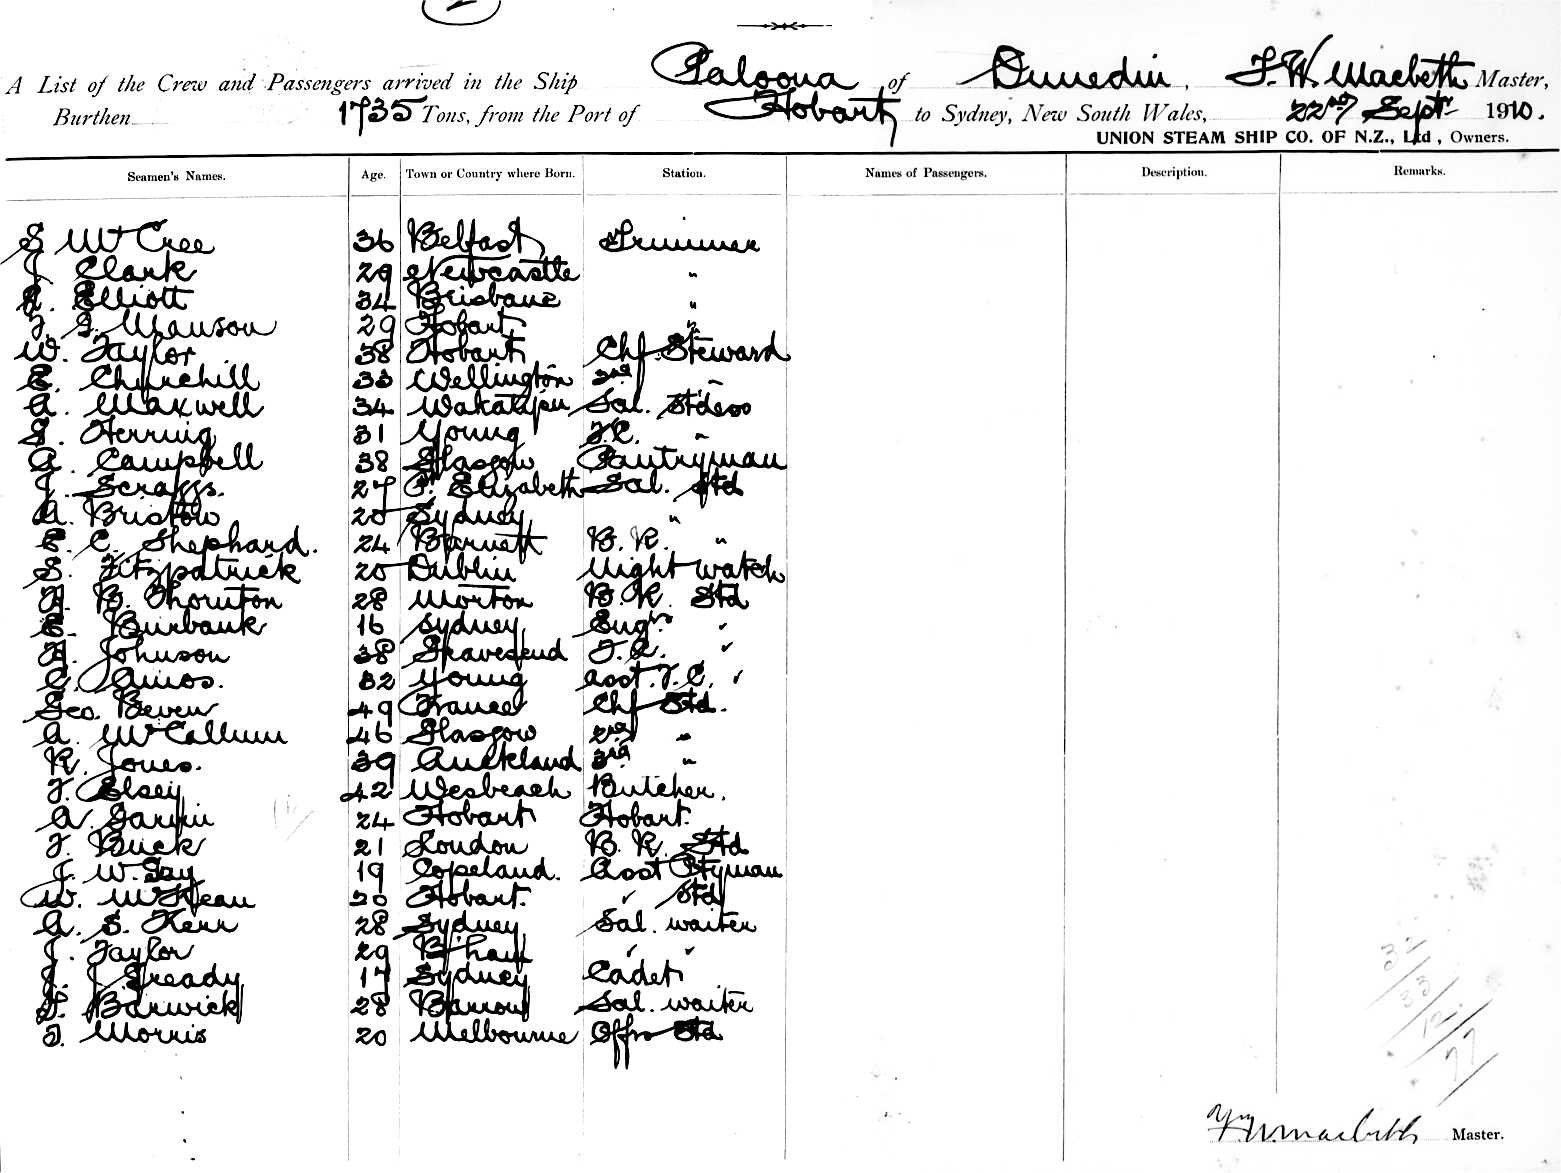 2
A List of the Crew and Passengers arrived in the Ship Paloona of Dunedin, F. W. Macbeth Master,
Burthen 1735 Tons, from the Port of Hobart to Sydney, New South Wales, 22nd Sept 1910.
UNION STEAM SHIP CO. OF N.Z., Ltd, Owners.
Seamen's Names. Age. Town or Country where Born. Station. Names of Passengers. Description. Remarks.
S McCree 36 Belfast Trimmer
J. Clark 29 Newcastle "
R. Elliott 34 Brisbane "
J. G. Manson 29 Hobart "
W. Taylor 38 Hobart Chf Steward
E. Churchill 33 Wellington 3rd "
A. Maxwell 34 Wakatipu Sal. Stdess
S. Herring 31 Young F.C. "
A. Campbell 38 Glasgow Pantryman
J. Scraggs. 27 Pt Elizabeth Sal. Std
A. Bristow 20 Sydney "
E. C. Shephard. 24 Barnett B. R. "
S. Fitzpatrick 20 Dublin Night watch
H. B. Thornton 28 Morton B. R. Std
E. Burbank 16 Sydney Engrs "
H. Johnson 38 Gravesend F. C. "
C. Amos. 32 Young Asst. F. C. "
Geo. Beven 49 France Chf Std.
A. McCallum 46 Glasgow 2nd "
R. Jones. 39 Auckland 3rd "
F. Elsey 42 Wesbeach Butcher.
A. Garvin 24 Hobart Hobart.
F. Buck 21 London B. R. Std
J. W. Gay 19 Copeland. Asst Ptyman
W. McKean 20 Hobart. " Std
A. S. Kerr 28 Sydney Sal. waiter
J. Taylor 29 B'ham " "
J. J. Gready 17 Sydney Cadet
F. Barwick 28 Barrow Sal. waiter
J. Morris 20 Melbourne Offrs Std
32
33
12
77
F W Macbeth Master.